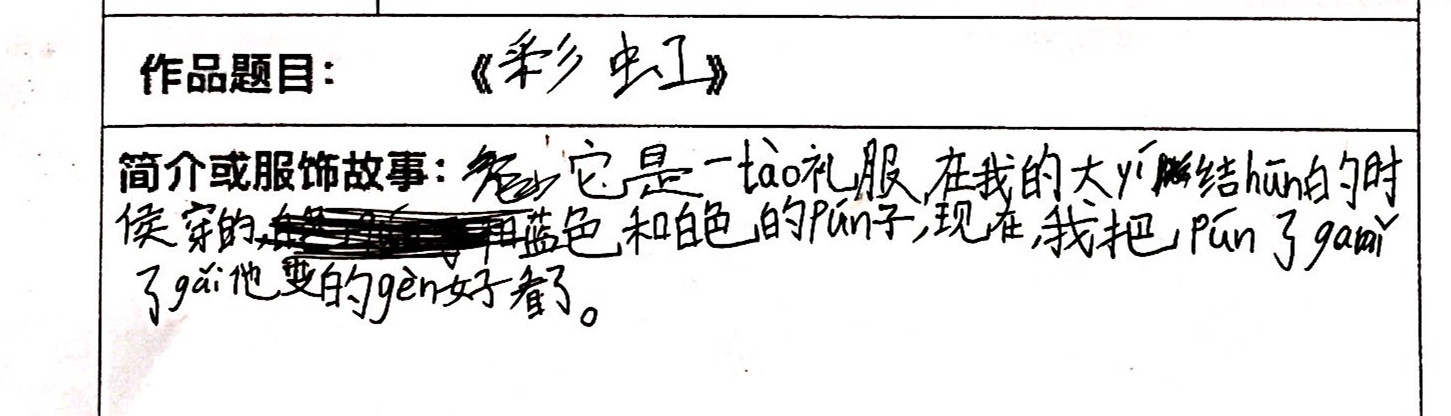 作品题目：《彩虹》
简介或服饰故事：它是一tào礼服,在我的大yí结hūn的时
侯穿的,蓝色和白色的pún子,现在,我把pún了gǎi
了gǎi他变的gèn好看了。